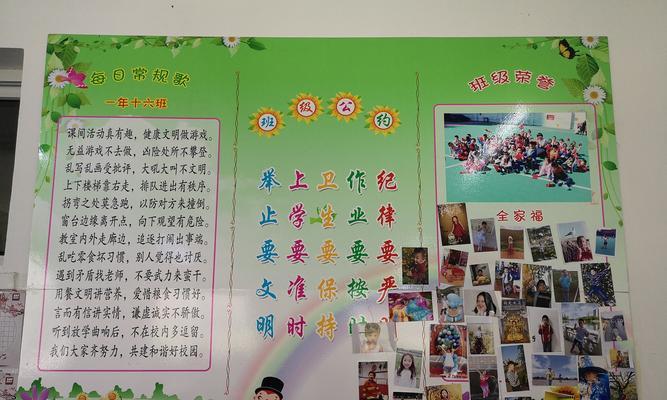 每日常规歌
一年十六班
课间活动真有趣，健康文明做游戏。
无益游戏不去做，凶险处所不攀登。
乱写乱画受批评，大吼大叫不文明。
上下楼梯靠右走，排队进出有秩序。
拐弯之处莫急跑，以防对方来撞倒。
窗台边缘离开点，向下观望有危险。
教室内外走廊边，追逐打闹出事端。
乱吃零食坏习惯，别人觉得也讨厌。
遇到矛盾找老师，不要武力来蛮干。
用餐文明讲营养，爱惜粮食习惯好。
言而有信讲实情，谦虚诚实不骄傲。
听到放学曲响后，不在校内多逗留。
我们大家齐努力，共建和谐好校园。
班级公约
纪律要严
作业要按
卫生要保持
上学要准时
举止要文明
班级荣誉
全家福